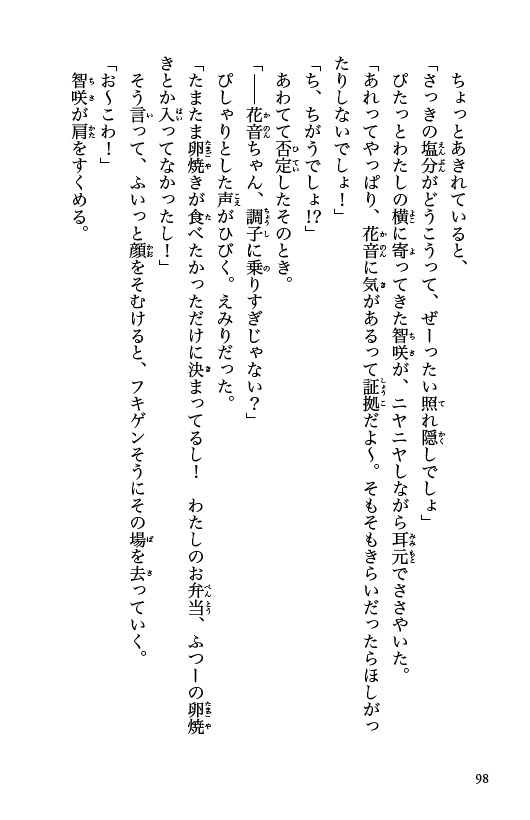 ちょっとあきれていると、
「さっきの塩分がどうこうって、ぜーったい照れ隠しでしょ」
ぴたっとわたしの横に寄ってきた智咲が、ニヤニヤしながら耳元でささやいた。
「あれってやっぱり、花音に気があるって証拠だよ～。そもそもきらいだったらほしがっ
たりしないでしょ！」
「ち、ちがうでしょ!?」
あわてて否定したそのとき。
「――花音ちゃん、調子に乗りすぎじゃない？」
ぴしゃりとした声がひびく。えみりだった。
「たまたま卵焼きが食べたかっただけに決まってるし！　わたしのお弁当、ふつーの卵焼
きとか入ってなかったし！」
そう言って、ふいっと顔をそむけると、フキゲンそうにその場を去っていく。
「お～こわ！」
智咲が肩をすくめる。
98